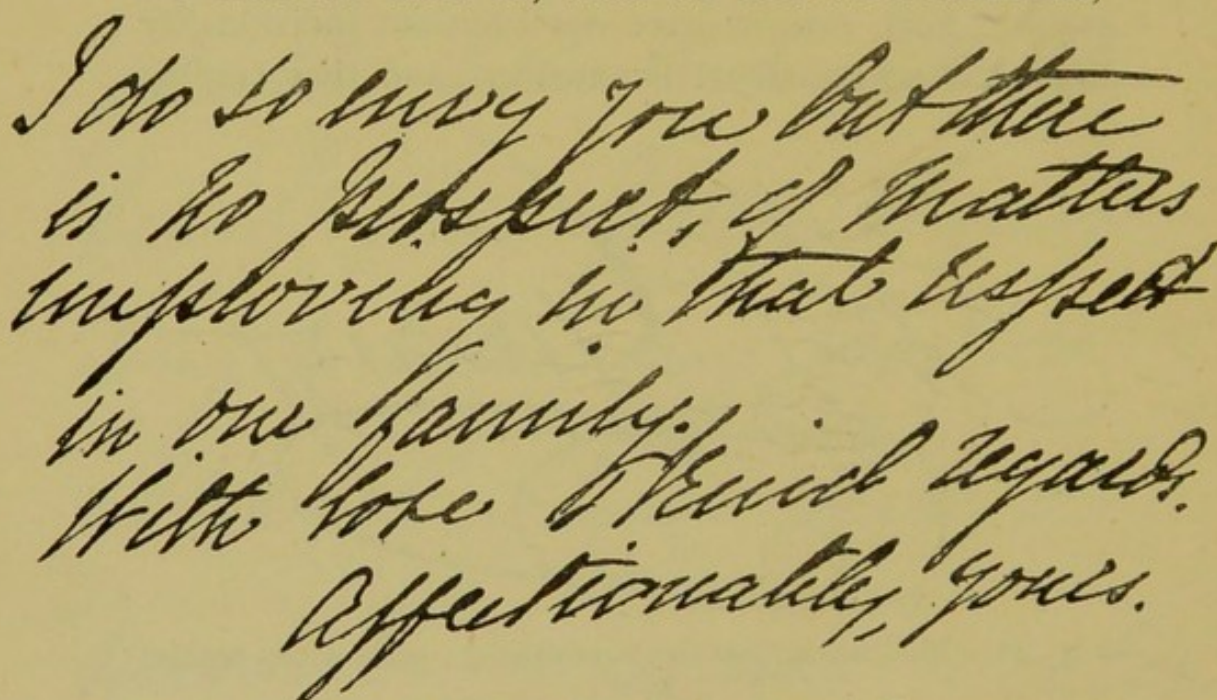 I do so envy you but there
is no prospect, of matters
improving in that respect
in our family.
With love & kind regards.
Affectionately, yours.